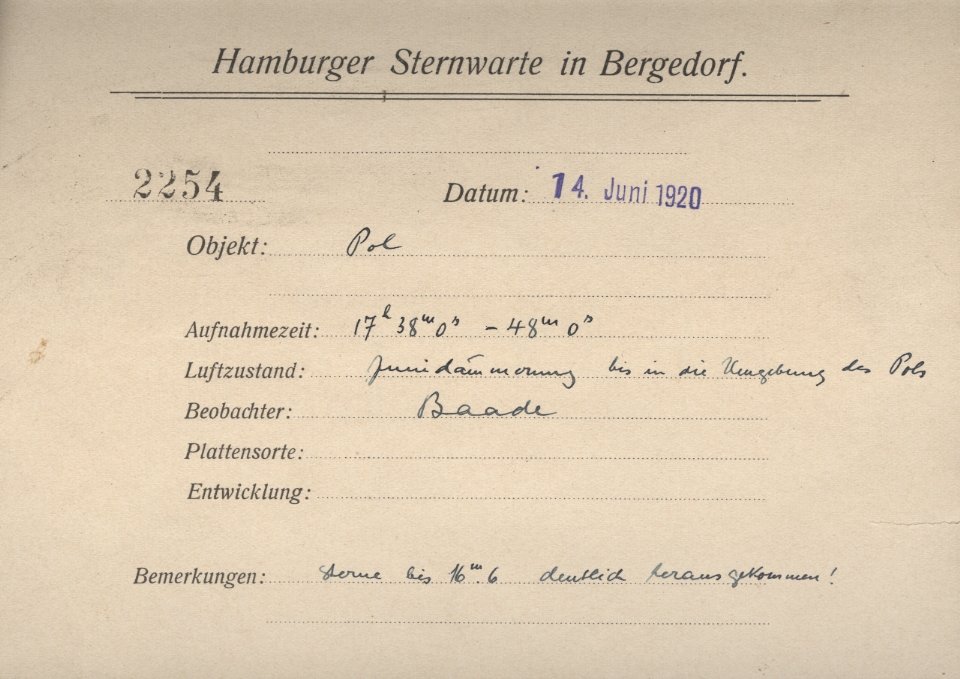 Hamburger Sternwarte in Bergedorf.
2254 Datum: 14. Juni 1920
Objekt: Pol
Aufnahmezeit: 17h 38m 0s - 48m 0s
Luftzustand: Junidämmerung bis in die Umgebung des Pols
Beobachter: Baade
Plattensorte:
Entwicklung:
Bemerkungen: Sterne bis 16m.6 deutlich herausgekommen!